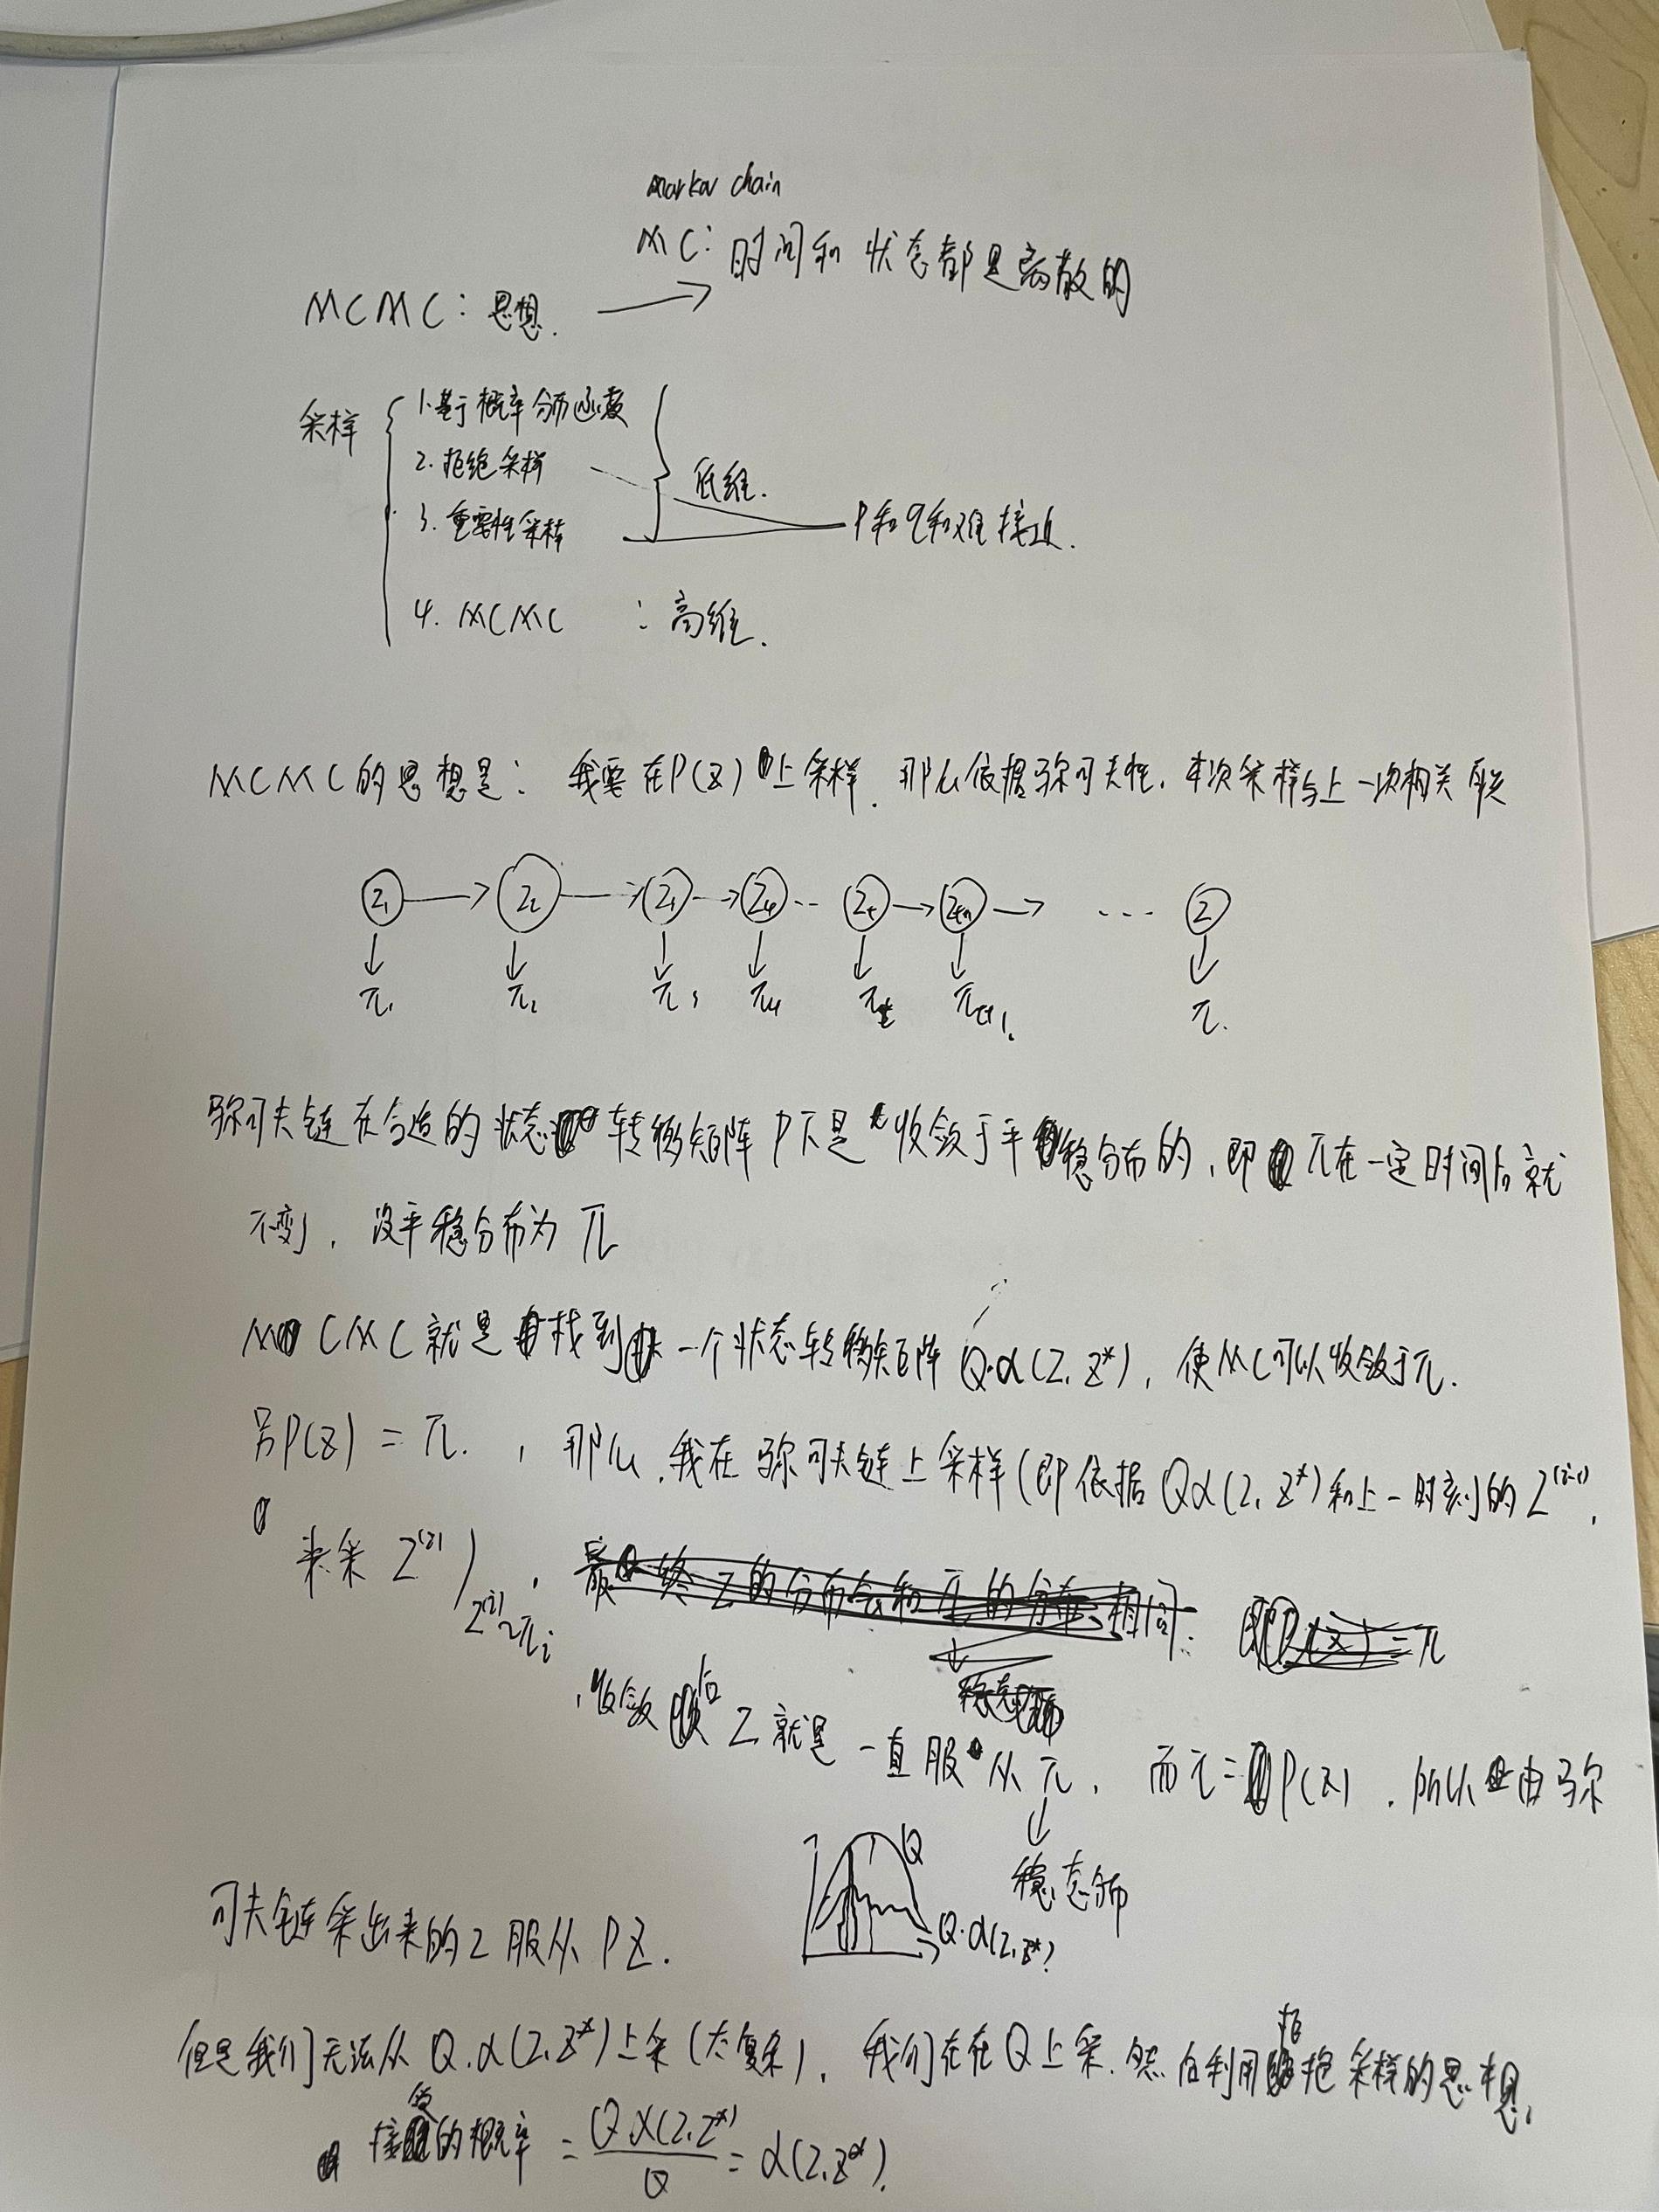 markov chain
MC: 时间和状态都是离散的
MCMC: 思想.
采样
1.基于概率分布函数
2.拒绝采样
3.重要性采样
低维.
P和q和难接近.
4. MCMC : 高维.
MCMC的思想是: 我要在P(Z)上采样. 那么依据马尔可夫性, 本次采样与上一次相关联
Z₁ Z₂ Z₃ Z₄ .. Zₜ Zₜ₊₁ ... Z
π₁ π₂ π₃ π₄ πₜ πₜ₊₁. π.
马尔可夫链在合适的状态转移矩阵P下是收敛于平稳分布的, 即π在一定时间后就
不变, 设平稳分布为π
MCMC就是找到一个状态转移矩阵 Q·α(Z, Z*), 使MC可以收敛于π.
另P(Z) = π. , 那么, 我在马尔可夫链上采样(即依据Qα(Z, Z*)和上一时刻的Z⁽ⁱ⁻¹⁾,
来采Z⁽ⁱ⁾) , 最终Z的分布会和π的分布相同. 即P(Z) = π
Z⁽ⁱ⁾~πᵢ
稳态分布
, 收敛后Z就是一直服从π, 而π=P(Z) , 所以由马尔
稳态分布
Q
Q·α(Z, Z*)
可夫链采出来的Z服从PZ.
但是我们无法从Q.α(Z, Z*)上采(太复杂), 我们在在Q上采. 然后利用拒绝采样的思想,
接受的概率 = Q.α(Z, Z*) / Q = α(Z, Z*).